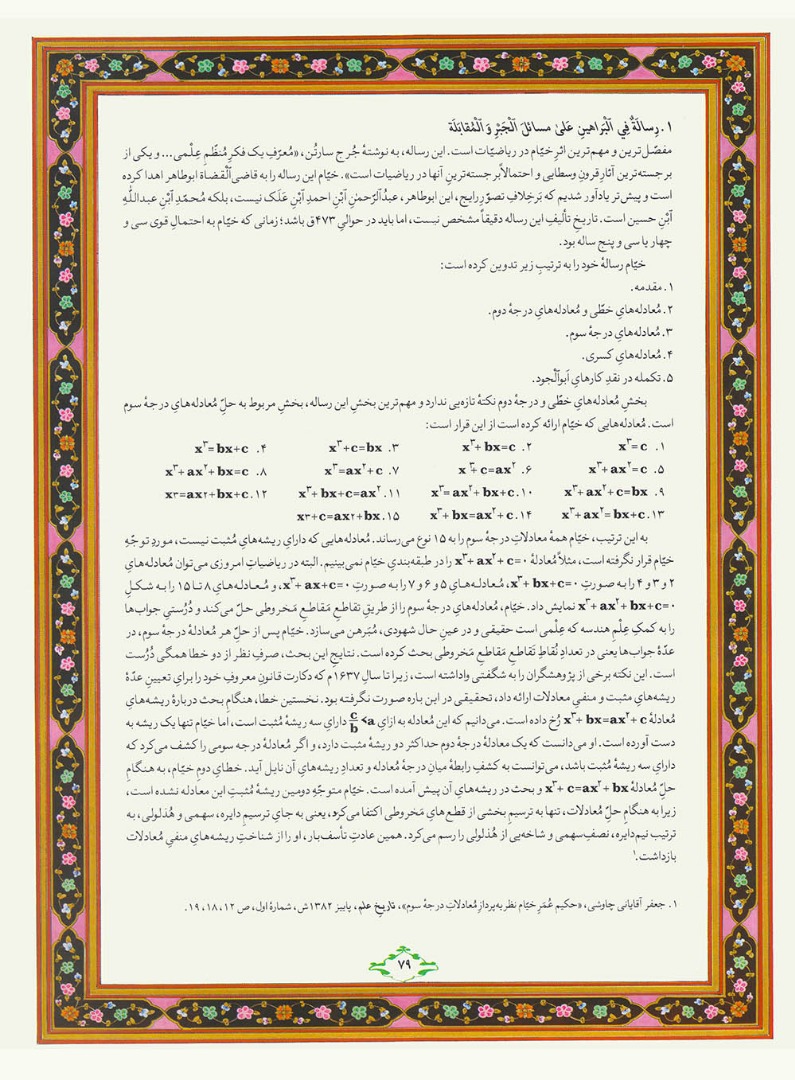 ۱. رِسالَةٌ فِي الْبَراهينِ عَلىٰ مسائلَ الْجَبْرِ وَ الْمُقابَلَة
مفصّل‌ترین و مهم‌ترین اثرِ خیّام در ریاضیّات است. این رساله، به نوشتهٔ جُرج سارتُن، «مُعرّفِ یک فکرِ مُنظّمِ عِلْمی... و یکی از
برجسته‌ترین آثارِ قرونِ وسطایی و احتمالاً برجسته‌ترینِ آنها در ریاضیات است». خیّام این رساله را به قاضی‌اَلْقُضاة ابوطاهر اهدا کرده
است و پیش‌تر یادآور شدیم که بَرخِلافِ تصوّرِ رایج، این ابوطاهر، عبدُاَلرّحمنِ اَبْنِ احمدِ اَبْنِ عَلَک نیست، بلکه مُحمّدِ اَبْنِ عبداللّٰهِ
اَبْنِ حسین است. تاریخِ تألیفِ این رساله دقیقاً مشخص نیست، اما باید در حوالیِ ۴۷۳ق باشد؛ زمانی که خیّام به احتمالِ قوی سی و
چهار یا سی و پنج ساله بود.
خیّام رسالهٔ خود را به ترتیبِ زیر تدوین کرده است:
۱. مقدمه.
۲. مُعادله‌هایِ خطّی و مُعادله‌هایِ درجهٔ دوم.
۳. مُعادله‌هایِ درجهٔ سوم.
۴. مُعادله‌هایِ کسری.
۵. تکمله در نقدِ کارهایِ اَبواَلْجود.
بخشِ مُعادله‌هایِ خطّی و درجهٔ دوم نکتهٔ تازه‌یی ندارد و مهم‌ترین بخشِ این رساله، بخشِ مربوط به حلِّ مُعادله‌هایِ درجهٔ سوم
است. مُعادله‌هایی که خیّام ارائه کرده است از این قرار است:
۱. x۳=c ۲. x۳+bx=c ۳. x۳+c=bx ۴. x۳=bx+c
۵. x۳+ax۲=c ۶. x۳+c=ax۲ ۷. x۳=ax۲+c ۸. x۳+ax۲+bx=c
۹. x۳+ax۲+c=bx ۱۰. x۳=ax۲+bx+c ۱۱. x۳+bx+c=ax۲ ۱۲. x۳=ax۲+bx+c
۱۳. x۳+ax۲=bx+c ۱۴. x۳+bx=ax۲+c ۱۵. x۳+c=ax۲+bx
به این ترتیب، خیّام همهٔ معادلاتِ درجهٔ سوم را به ۱۵ نوع می‌رساند. مُعادله‌هایی که دارایِ ریشه‌هایِ مُثبت نیست، موردِ توجّهِ
خیّام قرار نگرفته است، مثلاً مُعادلهٔ x۳+ax۲+c=۰ را در طبقه‌بندیِ خیّام نمی‌بینیم. البته در ریاضیاتِ امروزی می‌توان مُعادله‌هایِ
۲ و ۳ و ۴ را به صورتِ x۳+bx+c=۰، مُعادله‌هایِ ۵ و ۶ و ۷ را به صورتِ x۳+ax+c=۰، و مُعادله‌هایِ ۸ تا ۱۵ را به شکلِ
x۳+ax۲+bx+c=۰ نمایش داد. خیّام، مُعادله‌هایِ درجهٔ سوم را از طریقِ تقاطعِ مَقاطعِ مَخروطی حلّ می‌کند و دُرُستیِ جواب‌ها
را به کمکِ عِلْمِ هندسه که عِلْمی است حقیقی و در عینِ حال شهودی، مُبَرهن می‌سازد. خیّام پس از حلِّ هر مُعادلهٔ درجهٔ سوم، در
عدّهٔ جواب‌ها یعنی در تعدادِ نُقاطِ تَقاطعِ مَقاطعِ مَخروطی بحث کرده است. نتایجِ این بحث، صرفِ نظر از دو خطا همگی دُرُست
است. این نکته برخی از پژوهشگران را به شگفتی واداشته است، زیرا تا سالِ ۱۶۳۷م که دکارت قانونِ معروفِ خود را برایِ تعیینِ عدّهٔ
ریشه‌هایِ مثبت و منفیِ معادلات ارائه داد، تحقیقی در این باره صورت نگرفته بود. نخستین خطا، هنگامِ بحث دربارهٔ ریشه‌هایِ
مُعادلهٔ x۳+bx=ax۲+c رُخ داده است. می‌دانیم که این مُعادله به ازایِ c/b<a دارایِ سه ریشهٔ مُثبت است، اما خیّام تنها یک ریشه به
دست آورده است. او می‌دانست که یک معادلهٔ درجهٔ دوم حداکثر دو ریشهٔ مثبت دارد، و اگر مُعادلهٔ درجه سومی را کشف می‌کرد که
دارایِ سه ریشهٔ مُثبت باشد، می‌توانست به کشفِ رابطهٔ میانِ درجهٔ مُعادله و تعدادِ ریشه‌هایِ آن نایل آید. خطایِ دومِ خیّام، به هنگامِ
حلِّ مُعادلهٔ x۳+c=ax۲+bx و بحث در ریشه‌هایِ آن پیش آمده است. خیّام متوجّهِ دومین ریشهٔ مُثبتِ این معادله نشده است،
زیرا به هنگامِ حلِّ مُعادلات، تنها به ترسیمِ بخشی از قطع‌هایِ مَخروطی اکتفا می‌کرد، یعنی به جایِ ترسیمِ دایره، سهمی و هُذلولی، به
ترتیب نیم‌دایره، نصفِ سهمی و شاخه‌یی از هُذلولی را رسم می‌کرد. همین عادتِ تأسف‌بار، او را از شناختِ ریشه‌هایِ منفیِ مُعادلات
بازداشت.۱
۱. جعفر آقایانی چاوشی، «حکیم عُمَرِ خیّام نظریه‌پردازِ مُعادلاتِ درجهٔ سوم»، تاریخِ علم، پاییز ۱۳۸۲ش، شمارهٔ اول، ص ۱۲، ۱۸، ۱۹.
۷۹